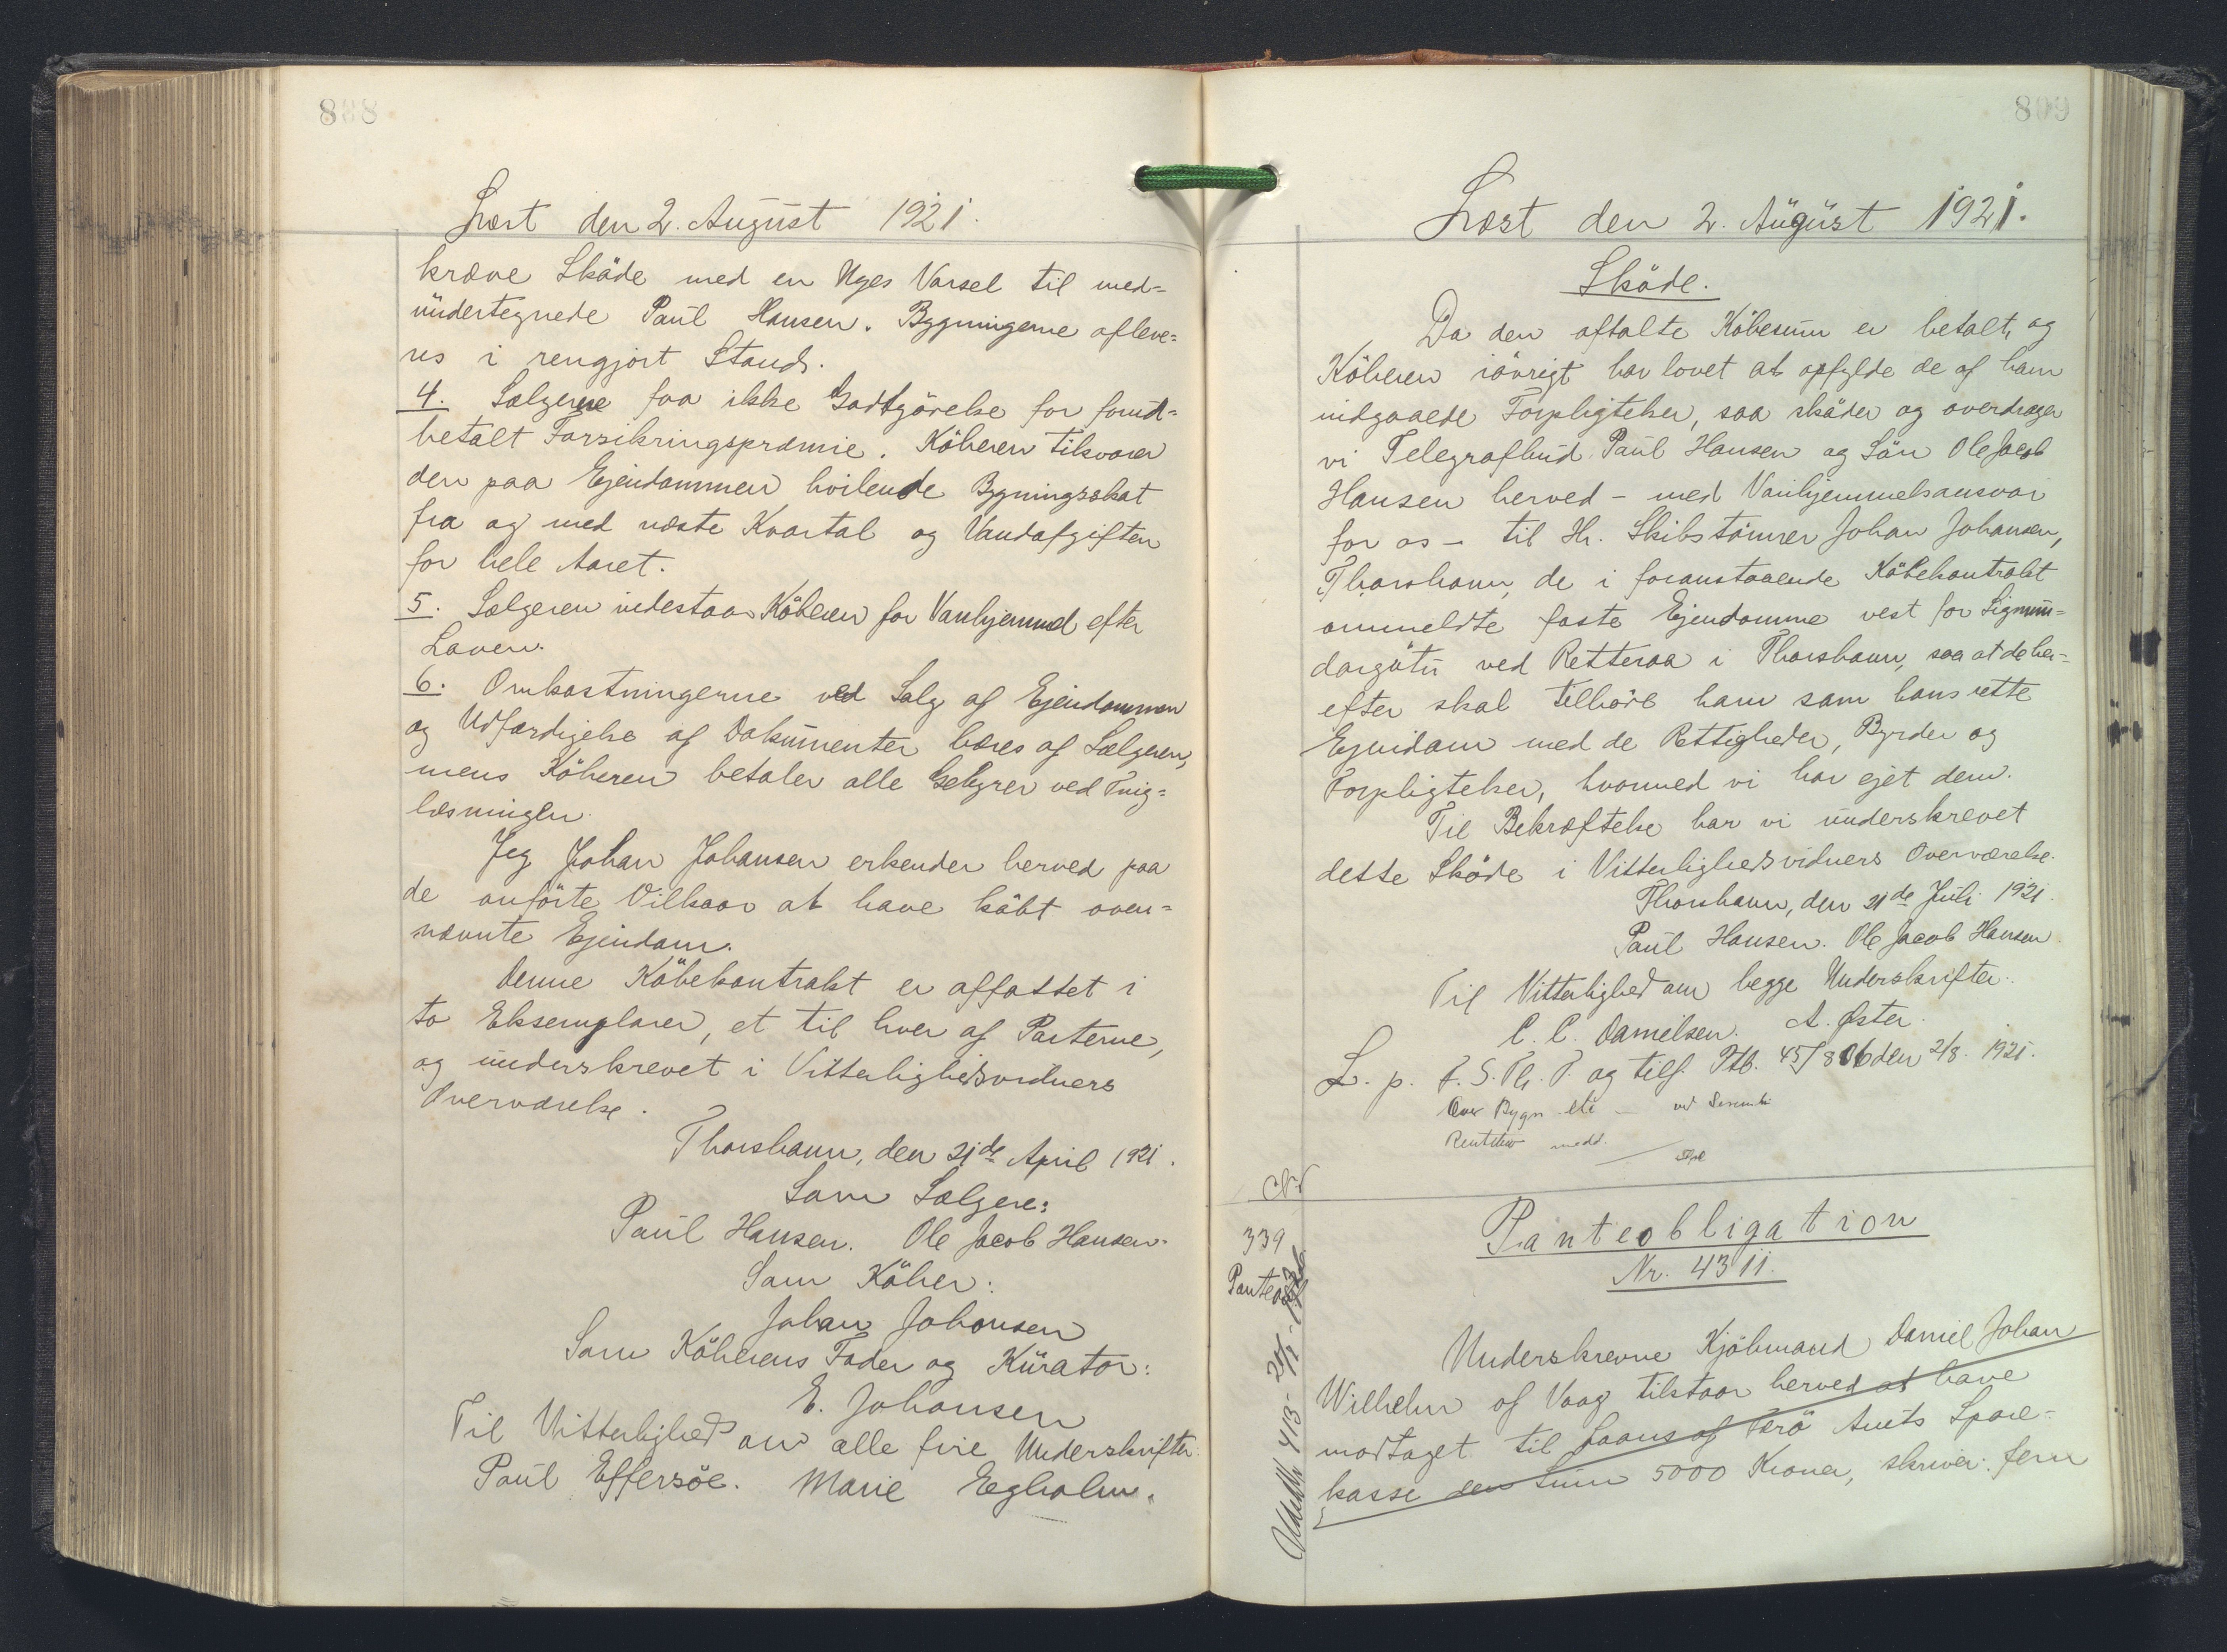 808
Læst den 2. August 1921.
kræve Sköde med en Uges Varsel til med-
undertegnede Paul Hansen. Bygningerne afleve-
res i rengjort Stand.
4. Sælgerne faa ikke Godtgörelse for forud-
betalt Forsikringspræmie. Köberen tilsvarer
den paa Ejendommen hvilende Bygningsskat
fra og med næste Kvartal og Vandafgiften
for hele Aaret.
5. Sælgeren indestaar Köberen for Vanhjemmel efter
Loven.
6. Omkostningerne ved Salg af Ejendommen
og Udfærdigelse af Dokumenter bæres af Sælgeren,
mens Köberen betaler alle Gebyrer ved Ting-
læsningen.
Jeg Johan Johansen erkender herved paa
de anförte Vilkaar at have köbt oven-
nævnte Ejendom.
Denne Köbekontrakt er affattet i
to Eksemplarer, et til hver af Parterne,
og underskrevet i Vitterlighedsvidners
Overværelse.
Thorshavn, den 21de April 1921.
Som Sælgere:
Paul Hansen. Ole Jacob Hansen.
Som Köber:
Johan Johansen
Som Köberens Fader og Kurator:
E. Johansen
Til Vitterlighed om alle fire Underskrifter.
Paul Effersöe. Marie Egholm.
809
Læst den 2. August 1921.
Sköde.
Da den aftalte Köbesum er betalt, og
Köberen iövrigt har lovet at opfylde de af ham
indgaaede Forpligtelser, saa sköder og overdrager
vi Telegrafbud Paul Hansen og Sön Ole Jacob
Hansen herved - med Vanhjemmelsansvar
for os - til Hr. Skibstömrer Johan Johansen,
Thorshavn, de i foranstaaende Köbekontrakt
ommeldte faste Ejendomme vest for Sigmun-
dargötu ved Retteraa i Thorshavn, saa at de her-
efter skal tilhöre ham som hans rette
Ejendom med de Rettigheder, Byrder og
Forpligtelser, hvormed vi har ejet dem.
Til Bekræftelse har vi underskrevet
dette Sköde i Vitterlighedsvidners Overværelse.
Thorshavn, den 21de Juli 1921.
Paul Hansen. Ole Jacob Hansen.
Til Vitterlighed om begge Underskrifter:
C. C. Danielsen. A. Øster.
L. p. F. S. Th. P. og tilf. Ptb. 45/806 den 2/8. 1921.
Over Bygn
339
Panteobl
Panteobligation
Nr. 4311.
Underskrevne Kjöbmand Daniel Johan
Wilhelm af Vaag tilstaar herved at have
modtaget til Laans af Færö Amts Spare-
kasse den Sum 5000 Kroner, skriver fem